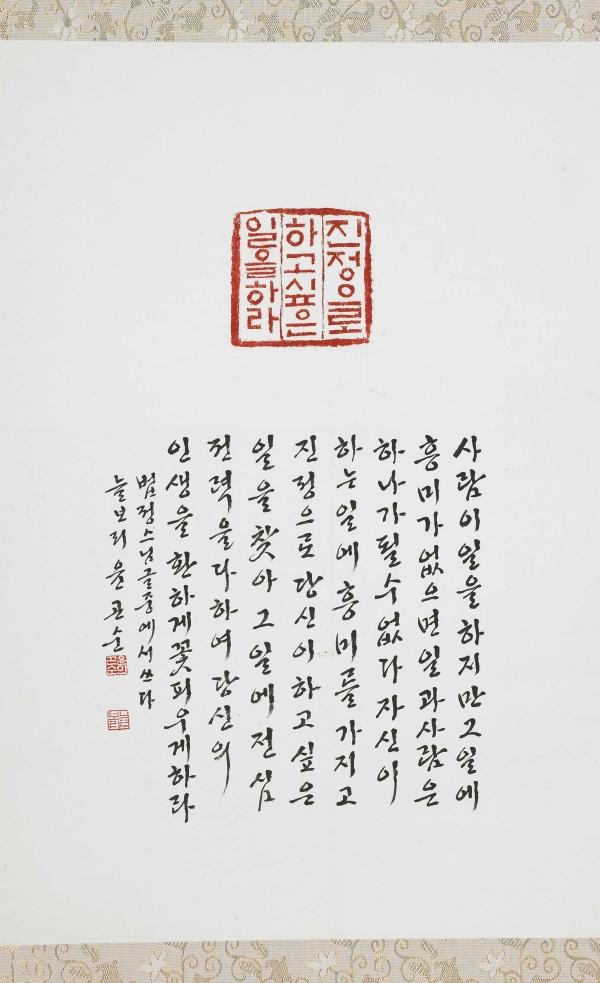 진정로
하고싶은
일을하라
사람이일을하지만그일에
흥미가없으면일과사람은
하나가될수없다자신이
하는일에흥미를가지고
진정으로당신이하고싶은
일을찾아그일에전심
전력을다하여당신의
인생을환하게꽃피우게하라
법정스님글중에서쓰다
늘보리 윤관순